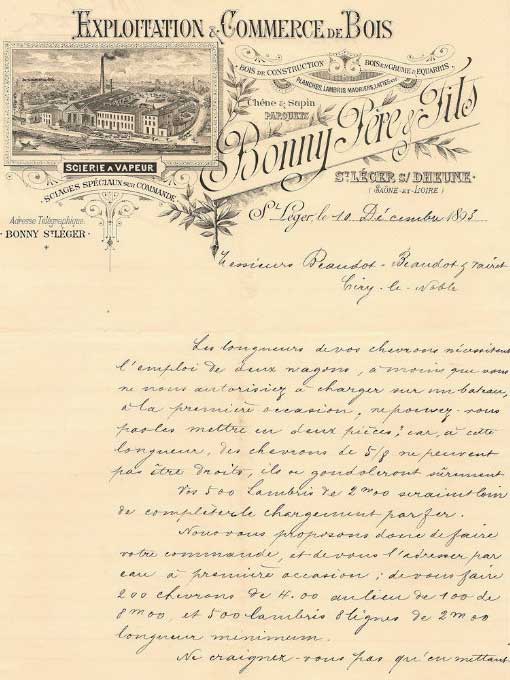 EXPLOITATION & COMMERCE DE BOIS
BOIS DE CONSTRUCTION BOIS EN GRUME & EQUARRIS,
PLANCHES, LAMBRIS, MADRIERS, LATTES ETC
Chêne & Sapin
PARQUETS
Bonny Père & Fils
SCIERIE A VAPEUR
SCIAGES SPÉCIAUX SUR COMMANDE
ST LÉGER S/ DHEUNE
(SAÔNE-ET-LOIRE)
Adresse Télégraphique
BONNY ST LÉGER
St Léger le 10 Décembre 1893
Messieurs Beaudot-Beaudot &
Ciry-le-Noble
Les longueurs de vos chevrons nécessitent
l'emploi de deux wagons, à moins que vous
ne nous autorisiez à charger sur un bateau,
à la première occasion, ne pouvez-vous
pas les mettre en deux pièces? car, à cette
longueur, des chevrons de 5/8 ne peuvent
pas être droits, ils se gondoleront sûrement
Vos 500 lambris de 2m00 seraient loin
de compléter le chargement par fer.
Nous vous proposons donc de faire
votre commande, et de vous l'adresser par
eau à première occasion; de vous faire
200 chevrons de 4.00 au lieu de 100 de
8m00, et 500 lambris 8 lignes de 2m00
longueur minimum.
Ne craignez-vous pas qu'en mettant